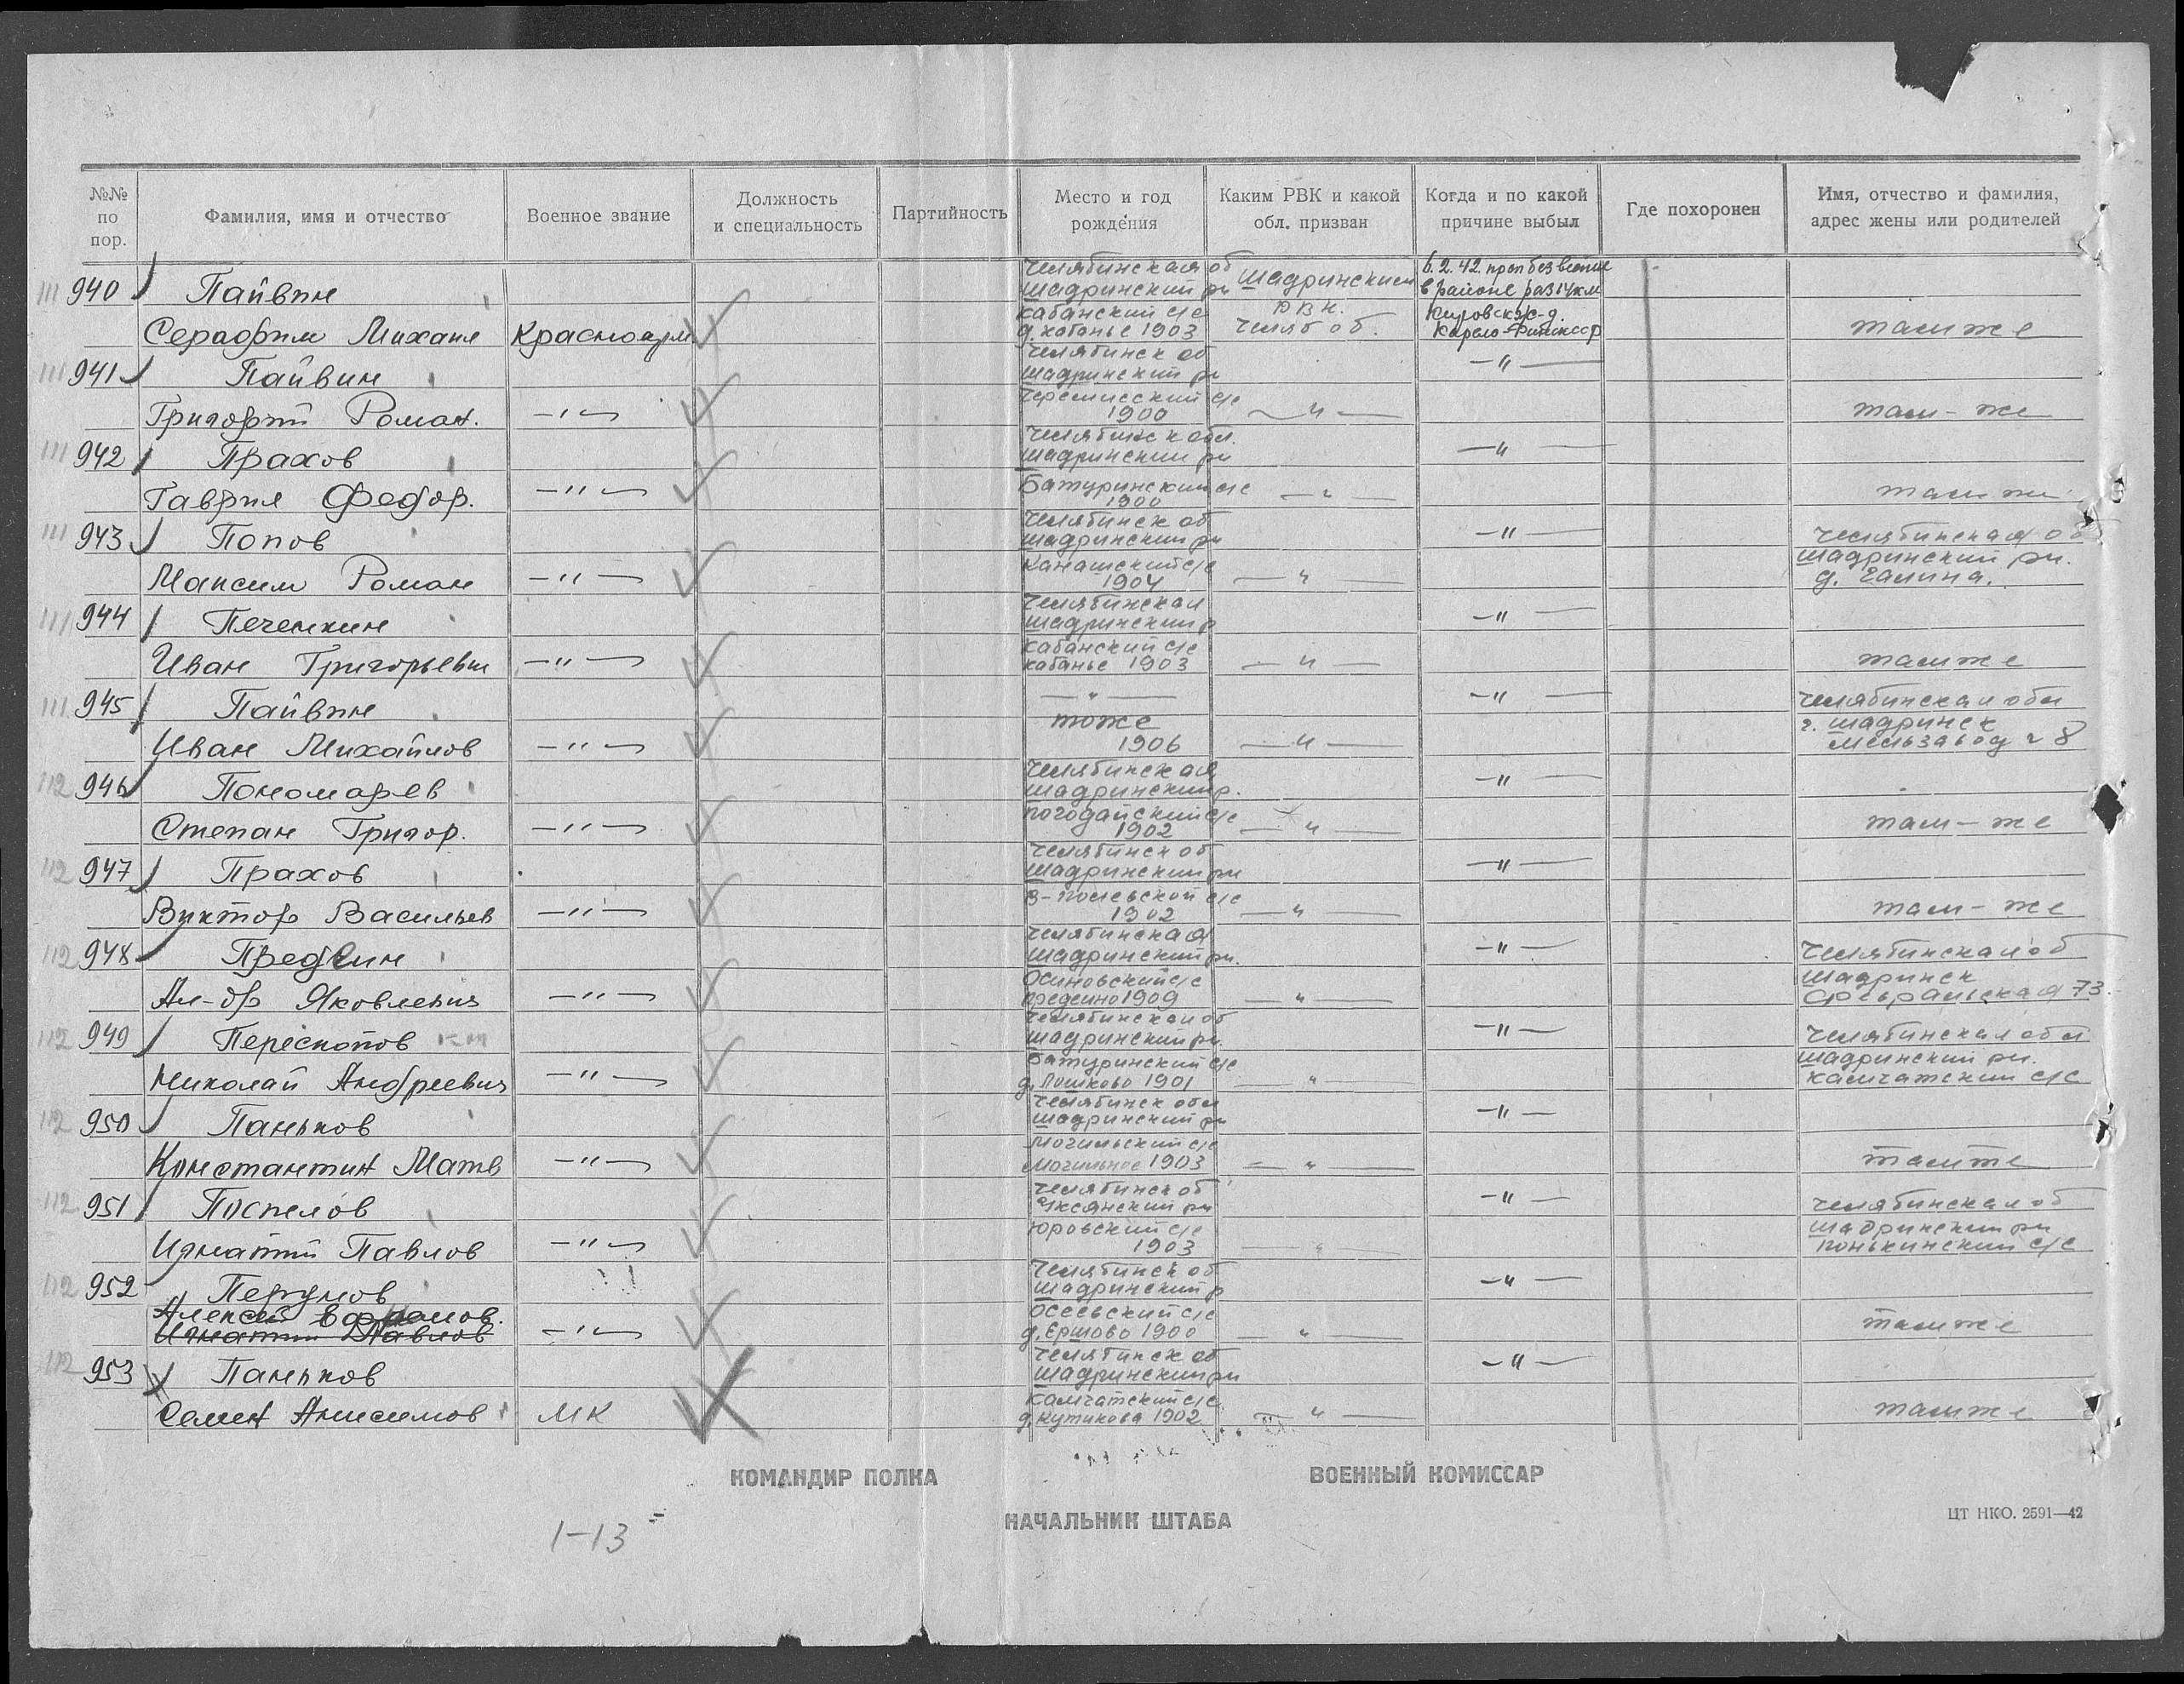 №№ по пор.
Фамилия, имя и отчество
Военное звание
Должность и специальность
Партийность
Место и год рождения
Каким РВК и какой обл. призван
Когда и по какой причине выбыл
Где похоронен
Имя, отчество и фамилия, адрес жены или родителей
111 940 Пайвин
Серафим Михаил Красноарм
Челябинская об
Шадринский рн
Кабанский с/с
д. Кабанье 1903
Шадринским
РВК.
Челяб об.
6.2.42. проп без вести
в районе раз 14 км
Кировск ж-д.
Карело-Финнсср
там же
111 941 Пайвин
Григорий Роман. —"—
Челябинск об
Шадринский рн
с/с
1900
—"—
—"—
там-же
111 942 Прахов
Гаврил Федор. —"—
Челябинск обл.
Шадринский рн
Батуринский с/с
1900
—"—
—"—
там же
111 943 Попов
Максим Роман —"—
Челябинск об
Шадринский рн
Канашский с/с
1904
—"—
—"—
Челябинская об
Шадринский рн.
д. Галина.
111 944 Печенкин
Иван Григорьевич —"—
Челябинская
Шадринский р
Кабанский с/с
Кабанье 1903
—"—
—"—
там же
111 945 Пайвин
Иван Михайлов —"—
—"—
тоже
1906
—"—
—"—
Челябинская обл
г. Шадринск
Мельзавод 8
112 946 Пономарев
Степан Григор. —"—
Челябинская
Шадринский р.
Погодайский с/с
1902
—"—
—"—
там-же
112 947 Прахов
Виктор Васильев —"—
Челябинск об
Шадринский рн
В-Полевской с/с
1902
—"—
—"—
там-же
112 948 Предеин
Ал-др Яковлевич —"—
Челябинская
Шадринский рн.
Осиновский с/с
Предеино 1909
—"—
—"—
Челябинская об
Шадринск
Февральская 73.
112 949 Перескопов
Николай Андреевич —"—
Челябинская об
Шадринский рн.
Батуринский с/с
д. 1901
—"—
—"—
Челябинская обл
Шадринский рн.
Камчатский с/с
112 950 Паньков
Константин Матв —"—
Челябинск обл
Шадринский рн
Могильский с/с
Могильное 1903
—"—
—"—
там же
112 951 Поспелов
Игнатий Павлов —"—
Челябинск об
Уксянский рн
Юровский с/с
1903
—"—
—"—
Челябинская об
Шадринский рн
Понькинский с/с
112 952 Перунов
Алексей Ефрамов.
Игнатий Павлов —"—
Челябинск об
Шадринский р
Осеевский с/с
д. Ершово 1900
—"—
—"—
там же
112 953 Паньков
Семен Анисимов МК
Челябинск об
Шадринский рн
Камчатский с/с
д. Кутикова 1902
—"—
—"—
там же
КОМАНДИР ПОЛКА
ВОЕННЫЙ КОМИССАР
НАЧАЛЬНИК ШТАБА
ЦТ НКО. 2591—42
1-13